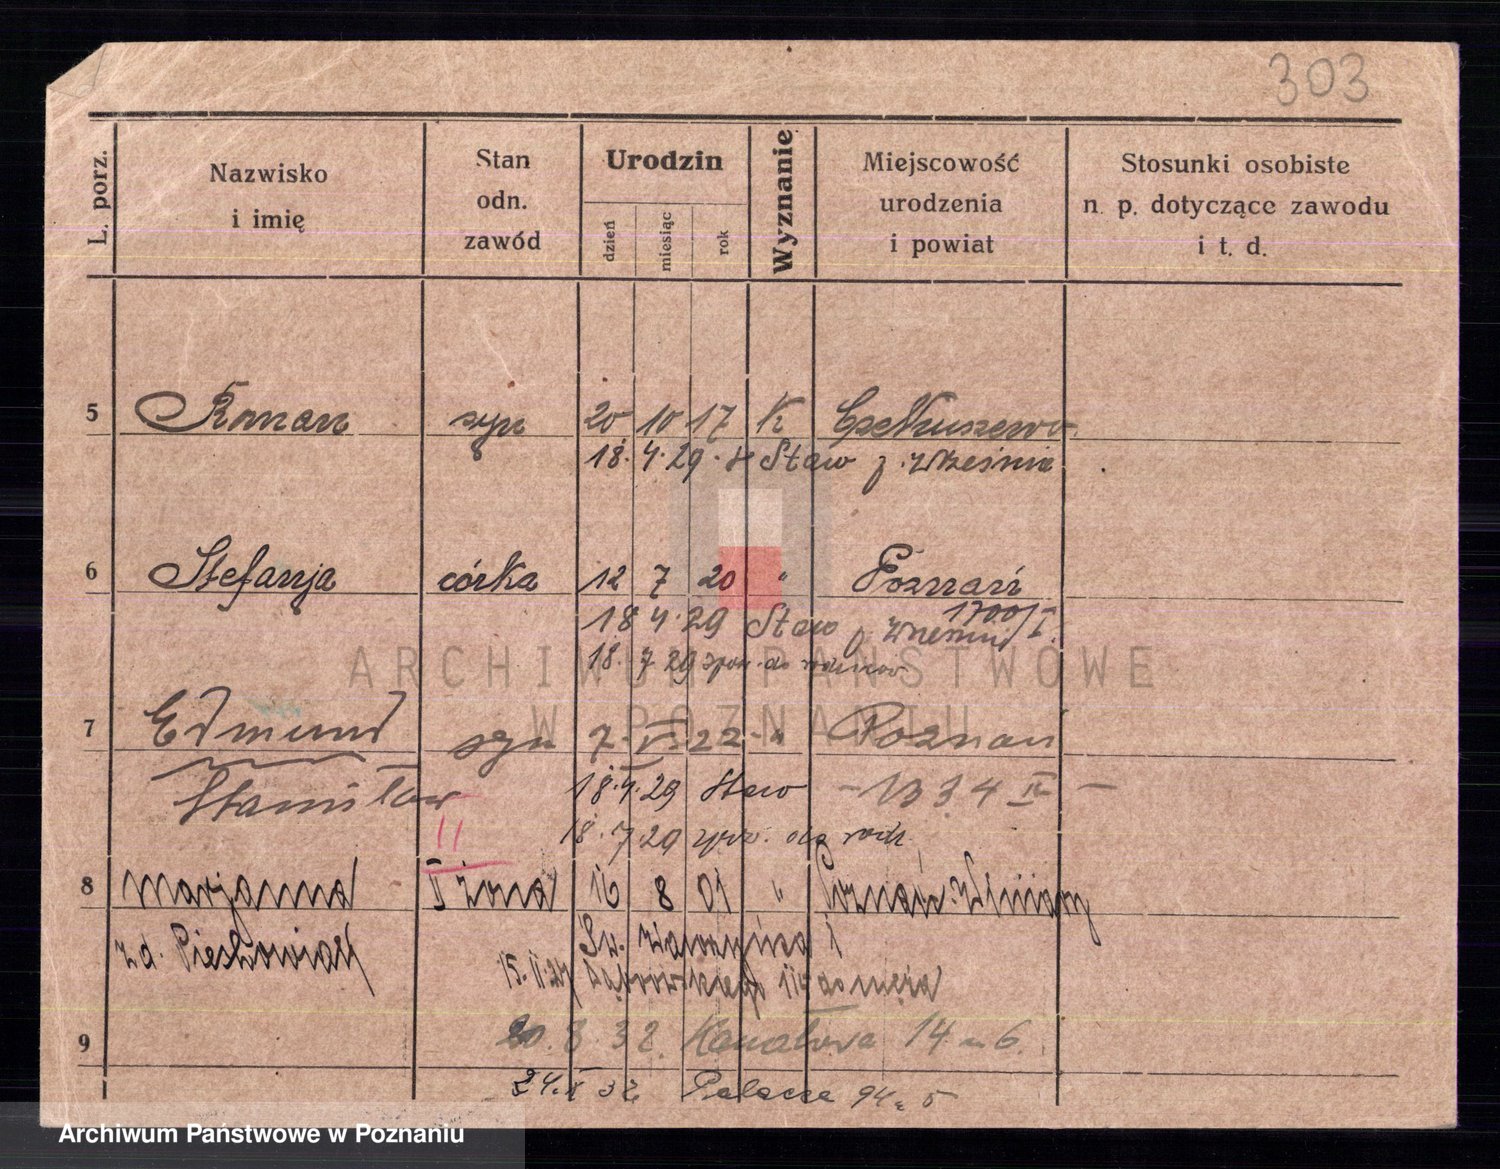 303
L. porz.
Nazwisko i imię
Stan odn. zawód
Urodzin
dzień miesiąc rok
Wyznanie
Miejscowość urodzenia i powiat
Stosunki osobiste n. p. dotyczące zawodu i t. d.
5 Roman syn 20 10 17 K
18. 4. 29 Staw p. Września
6 Stefanja córka 12 7 20 " Poznań
18 4 29 Staw p. Września 1700/I.
18. 7 29
7 Edmund syn 7 VI 22 " Poznań
Stanisław 18. 4. 29 Staw - 1334 IV -
II 18. 7 29
8 Marjanna II żona 16 8 01 " Poznań Winiary
z d. Piechowiak Św. Wawrzyńca
15. II. 27 Dąbrowskiego do męża
9 20. 8. 32. Kanałowa 14 m 6.
24. X 32 Palacza 94 m 5
ARCHIWUM PAŃSTWOWE
W POZNANIU
Archiwum Państwowe w Poznaniu